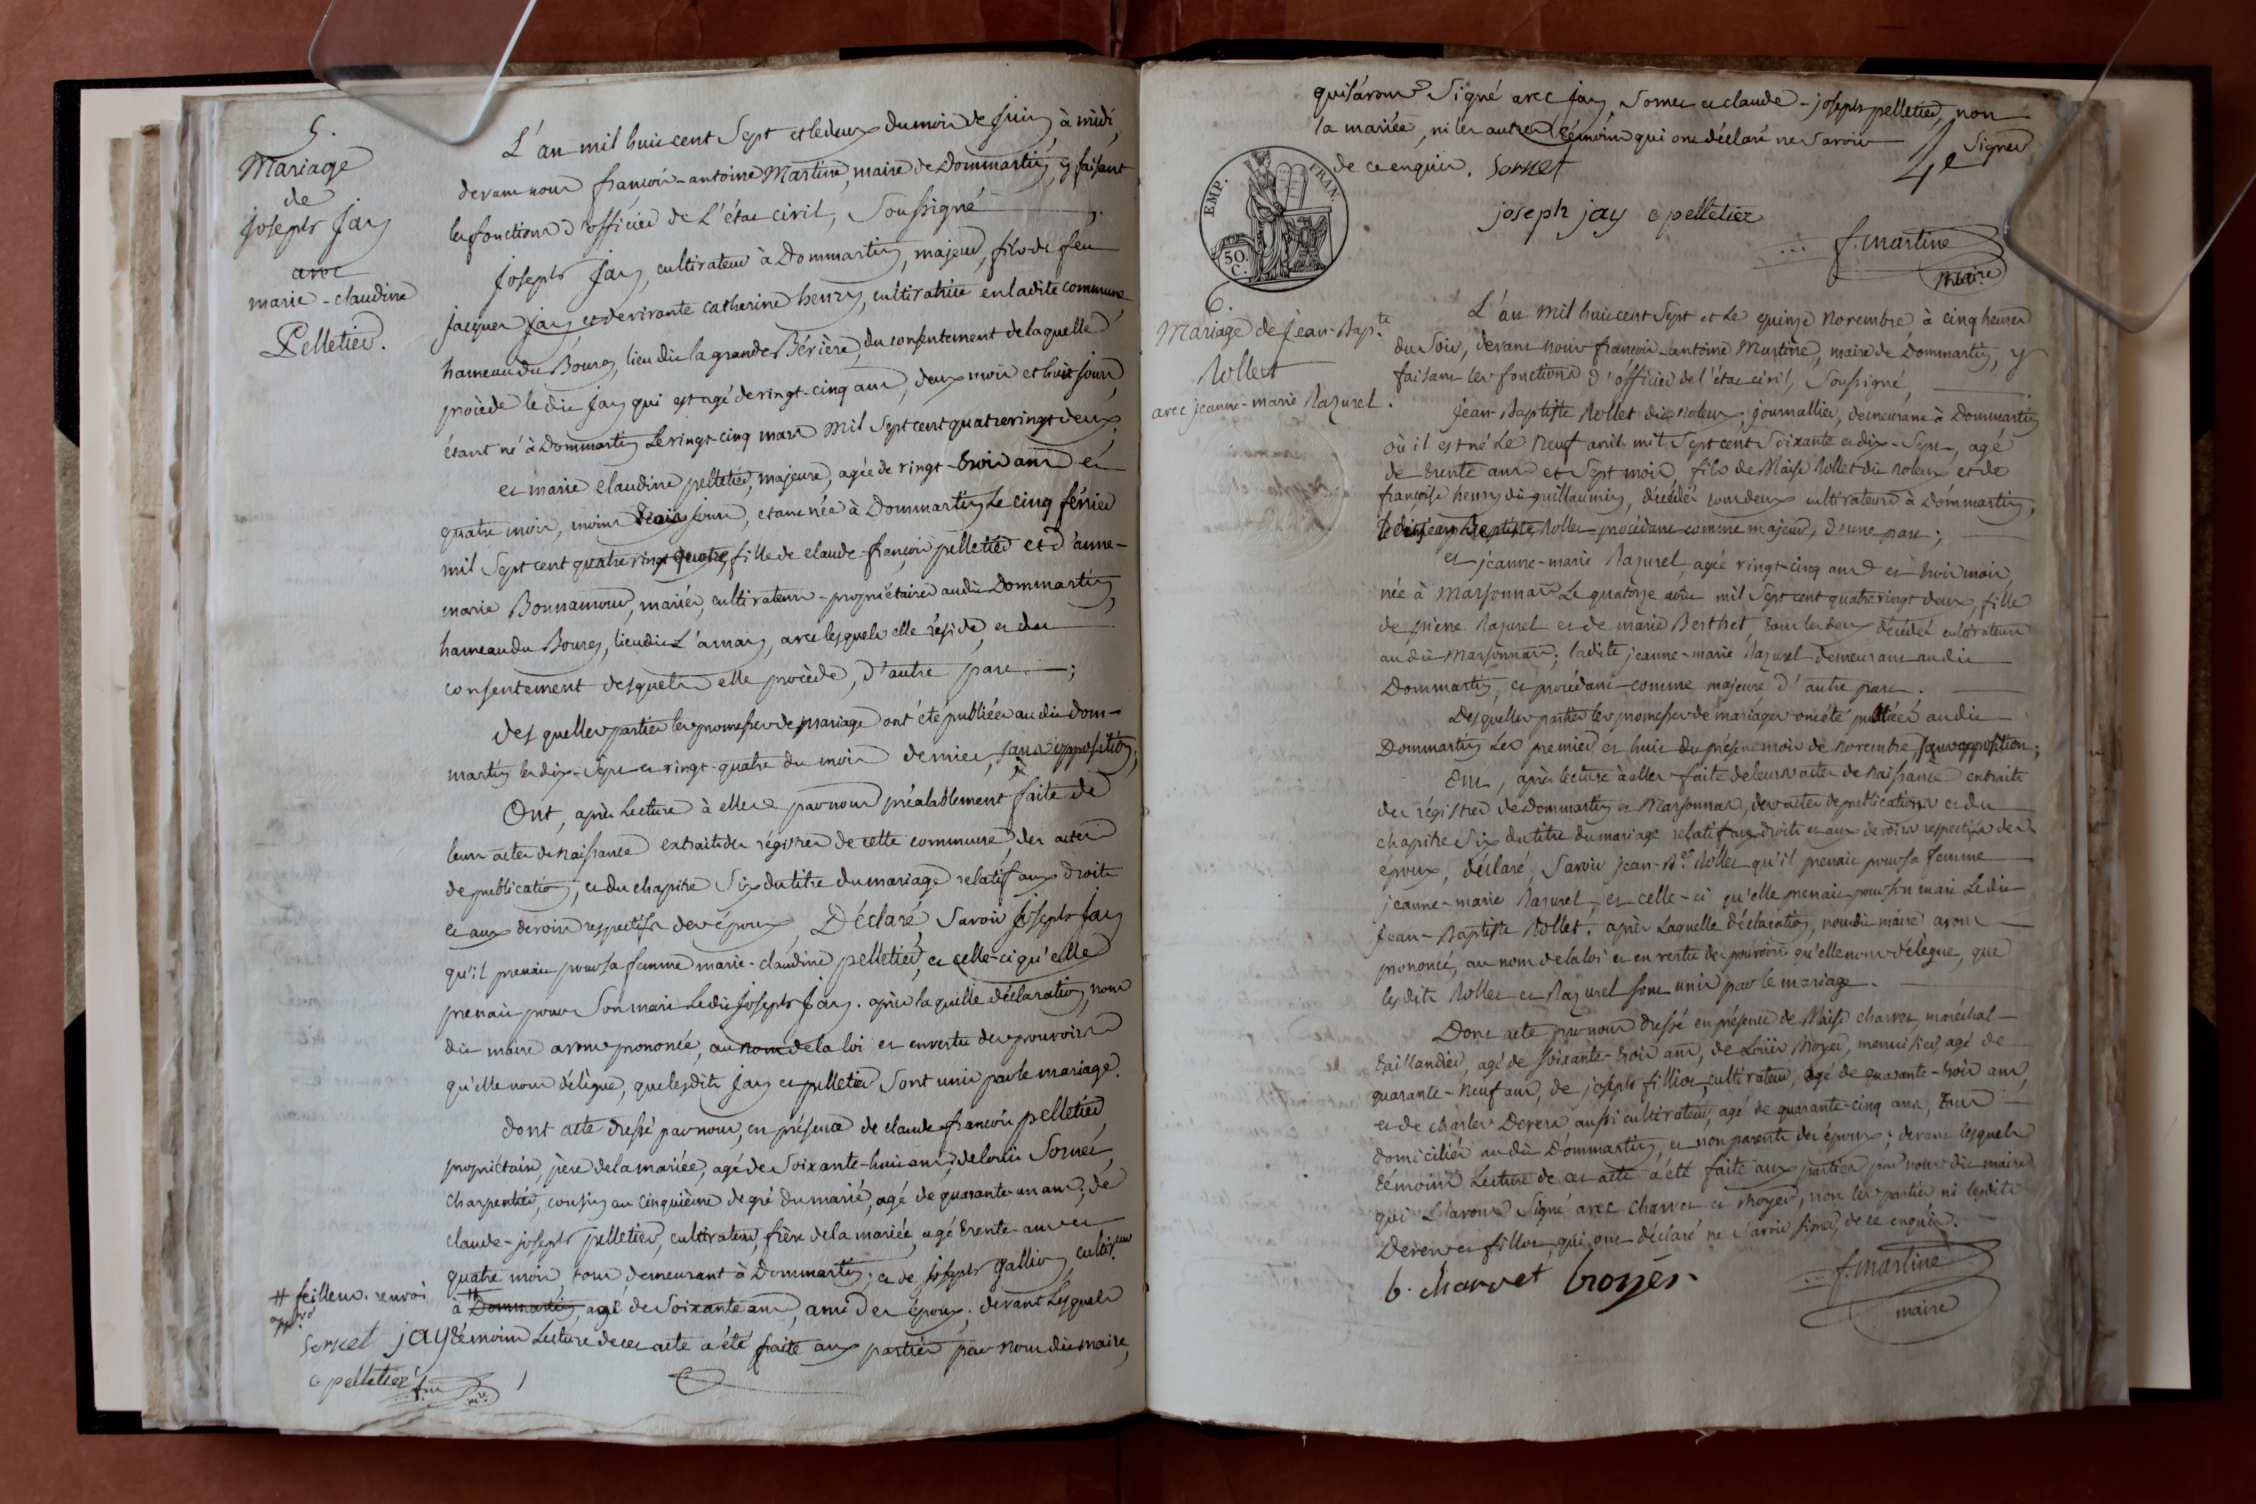 5.
Mariage
de
joseph Jay
avec
marie-claudine
Pelletier.
L'an mil huit cent Sept et le deux du mois de juin, à midi,
devant nous françois-antoine Martine, maire de Dommartin, y faisant
les fonctions d'officier de L'état civil, Soussigné
joseph Jay, cultivateur à Dommartin, majeur, fils de feu
jacques Jay, et de vivante catherine henry, cultivatrice en ladite commune,
hameau du Bourg, lieu dit la grande Bérière, du consentement de laquelle
procède ledit Jay qui est agé de vingt-cinq ans, deux mois et huit jours,
étant né à Dommartin Le vingt-cinq mars mil Sept cent quatre vingt deux,
et marie claudine pelletier, majeure, agée de vingt-trois ans et
quatre mois, moins trois jours, étant née à Dommartin Le cinq février
mil Sept cent quatre vingt quatre, fille de claude-françois pelletier et d'anne-
marie Bonnamour, mariés, cultivateurs-propriétaires audit Dommartin,
hameau du Bourg, lieu dit L'arnay, avec lesquels elle réside, et du
consentement desquels elle procède, d'autre part ;
Desquelles parties les promesses de mariage ont été publiées audit Dom-
martin les dix-Sept et vingt-quatre du mois dernier, sans opposition;
Ont, après Lecture à elles par nous préalablement faite de
leurs actes de naissance extraits des régistres de cette commune, des actes
de publication, et du chapitre Six du titre du mariage relatif aux droits
et aux devoirs respectifs des époux, Déclaré Savoir joseph Jay
qu'il prenait pour sa femme marie-claudine pelletier, et celle-ci qu'elle
prenait pour Son mari Ledit joseph Jay. après laquelle déclaration, nous
dit maire avons prononcé, au nom de la loi et en vertu des pouvoirs
qu'elle nous délègue, que lesdits Jay et pelletier Sont unis par le mariage.
dont acte dressé par nous, en présence de claude françois pelletier,
propriétaire, père de la mariée, agé de Soixante-huit ans, de louis Sornet,
charpentier, cousin au cinquième degré du marié, agé de quarante un ans; de
claude-joseph pelletier, cultivateur, frère de la mariée, agé trente ans et
quatre mois, tous demeurant à Dommartin; et de joseph gallion, cultiv.eur
à # Dommartin, agé de Soixante ans, ami des époux; devant Lesquels
témoins Lecture de cet acte a été faite aux parties par nous dit maire,
# feillens. renvoi
app.ro
sornet jay
c pelletier f.m m.re
qui l'avons Signé avec Jay, Sornet et claude-joseph pelletier, non
la mariée, ni les autres témoins qui ont déclaré ne Savoir Signer
de ce enquis. sornet
4e
EMP. FRAN.
50. C.
joseph jay c pelletier
f. martine
maire
6.
Mariage de Jean-Bap.te
Rollet
avec jeanne-marie Razurel.
L'an mil huit cent Sept et Le quinze Novembre à cinq heures
du Soir, devant nous françois-antoine Martine, maire de Dommartin, y
faisant les fonctions d'officier de l'état civil, Soussigné,
Jean-Baptiste Rollet dit , journallier, demeurant à Dommartin
où il est né Le Neuf avril mil Sept cent Soixante et dix-Sept, agé
de trente ans et Sept mois, fils de Blaise Rollet dit et de
françoise henry dit guillaumin, décédés tous deux cultivateurs à Dommartin,
Ledit jean Baptiste Rollet procédant comme majeur, d'une part;
et jeanne-marie Razurel, agée vingt-cinq ans et trois mois,
née à Marsonnas Le quatorze août mil Sept cent quatre vingt deux, fille
de pierre Razurel et de marie Berthet, tous les deux décédés cultivateurs
audit Marsonnas; ladite jeanne-marie Razurel demeurant audit
Dommartin, et procédant comme majeure d'autre part.
Desquelles parties les promesses de mariages ont été publiées audit
Dommartin Les premier et huit du présent mois de novembre, sans opposition;
Ont, après lecture à elles faite de leurs actes de Naissance extraits
des régistres de Dommartin et Marsonnas, des actes de publication et du
chapitre Six du titre du mariage relatif aux droits et aux devoirs respectifs des
époux, déclaré, Savoir jean-B.te Rollet qu'il prenait pour sa femme
jeanne-marie Razurel, et celle-ci qu'elle prenait pour Son mari Ledit
Jean-Baptiste Rollet. après Laquelle déclaration, nous dit maire avons
prononcé, au nom de la loi et en vertu des pouvoirs qu'elle nous délègue, que
lesdits Rollet et Razurel sont unis par le mariage.
Dont acte par nous dressé en présence de Blaise charvet, maréchal-
taillandier, agé de soixante-trois ans, de Louis , menuisier, agé de
quarante-neuf ans, de joseph fillion, cultivateur, agé de quarante-trois ans,
et de charles aussi cultivateur, agé de quarante-cinq ans, tous
domiciliés audit Dommartin, et non parents des époux; devant lesquels
témoins Lecture de cet acte a été faite aux parties par nous dit maire
qui L'avons Signé avec charvet et , non les parties ni lesdits
et , qui ont déclaré ne Savoir signer, de ce enquis.
b. charvet
f. martine
maire